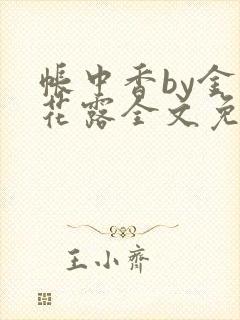 帐中香by金
花露全文免
王小齐